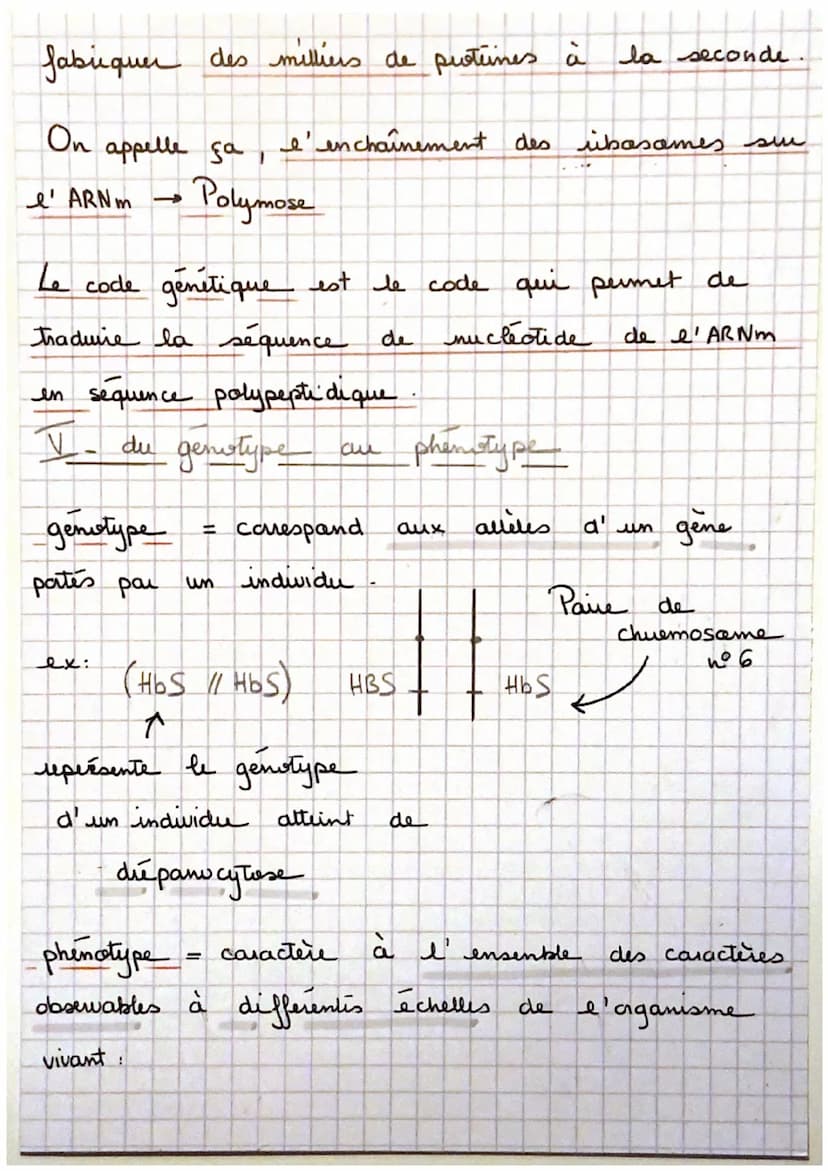 fabriquer des milliers de protéines à la seconde.
On appelle ça, l'enchaînement des ribosomes sur
l'ARNm → Polymose
Le code génétique est le code qui permet de
traduire la séquence de nucléotide de l'ARNm
en séquence polypeptidique.
V - du génotype au phénotype
génotype = correspond aux allèles d'un gène
portés par un individu.
Paire de
chromosome
n°6
ex: (HbS // HbS) HBS HbS
↑
représente le génotype
d'un individu atteint de
drépanocytose
phénotype = caractère à l'ensemble des caractères
observables à différents échelles de l'organisme
vivant :